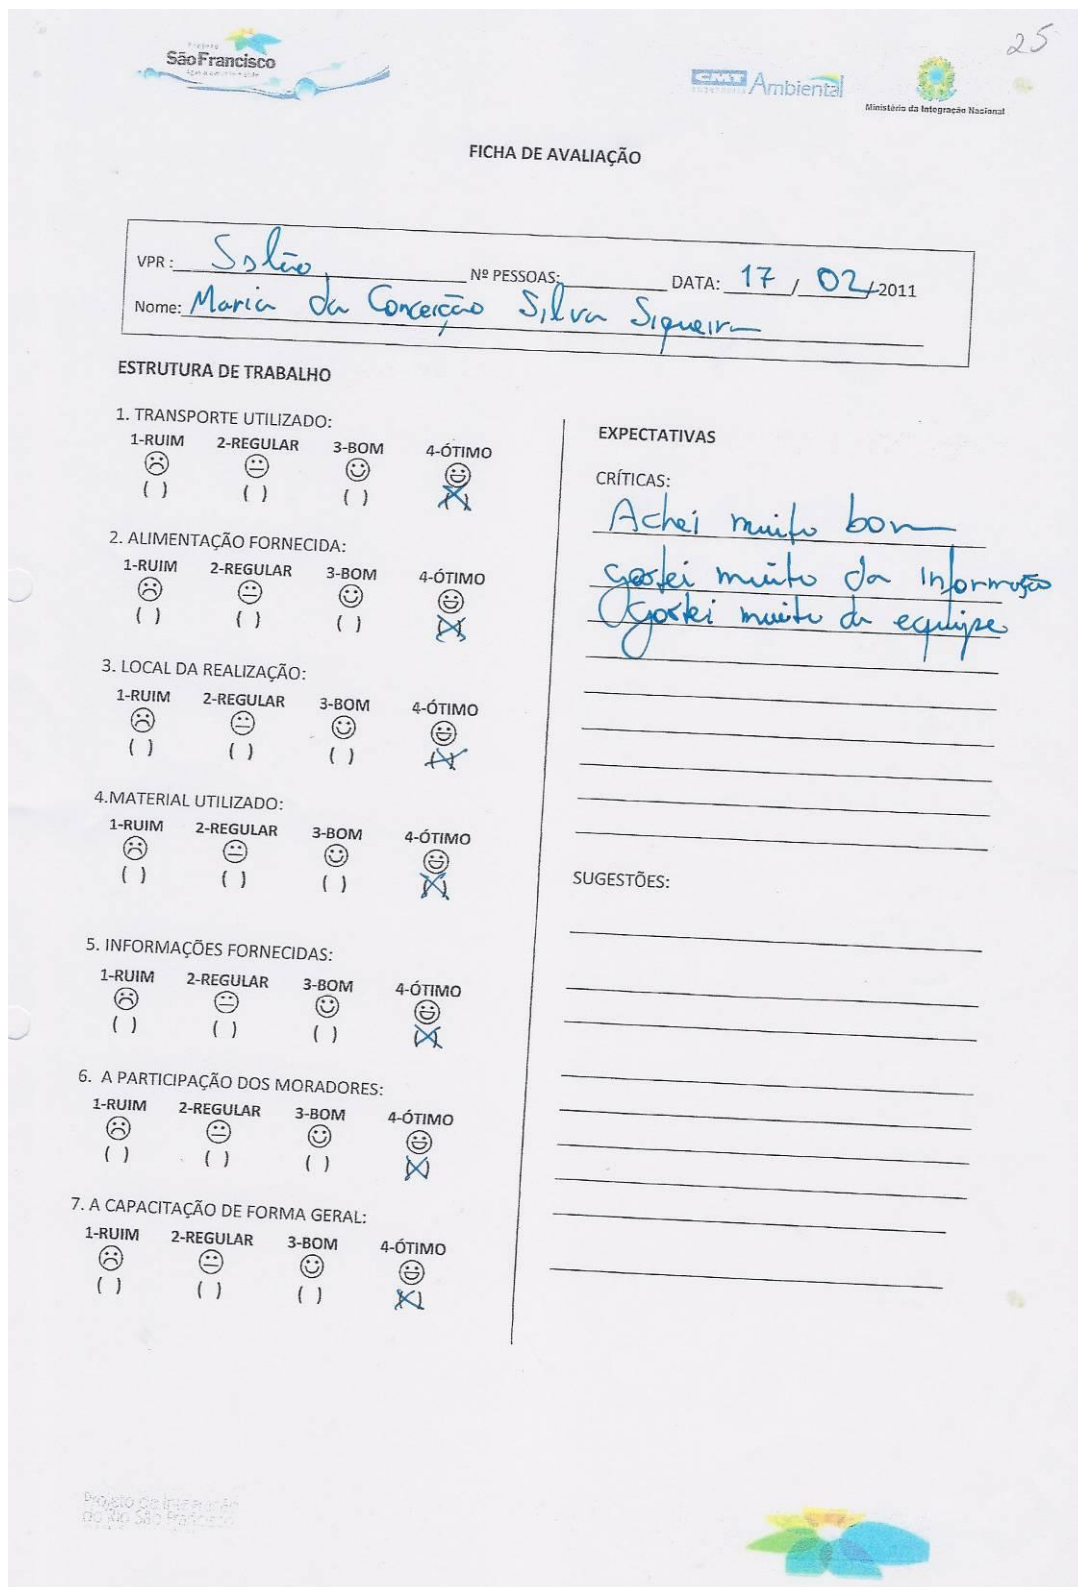 25
Projeto
São Francisco
CMT Ambiental
ENGENHARIA
Ministério da Integração Nacional
FICHA DE AVALIAÇÃO
VPR: Solão Nº PESSOAS: DATA: 17 / 02 /2011
Nome: Maria da Conceição Silva Siqueira
ESTRUTURA DE TRABALHO
1. TRANSPORTE UTILIZADO:
1-RUIM 2-REGULAR 3-BOM 4-ÓTIMO
( ) ( ) ( ) (X)
2. ALIMENTAÇÃO FORNECIDA:
1-RUIM 2-REGULAR 3-BOM 4-ÓTIMO
( ) ( ) ( ) (X)
3. LOCAL DA REALIZAÇÃO:
1-RUIM 2-REGULAR 3-BOM 4-ÓTIMO
( ) ( ) ( ) (X)
4.MATERIAL UTILIZADO:
1-RUIM 2-REGULAR 3-BOM 4-ÓTIMO
( ) ( ) ( ) (X)
5. INFORMAÇÕES FORNECIDAS:
1-RUIM 2-REGULAR 3-BOM 4-ÓTIMO
( ) ( ) ( ) (X)
6. A PARTICIPAÇÃO DOS MORADORES:
1-RUIM 2-REGULAR 3-BOM 4-ÓTIMO
( ) ( ) ( ) (X)
7. A CAPACITAÇÃO DE FORMA GERAL:
1-RUIM 2-REGULAR 3-BOM 4-ÓTIMO
( ) ( ) ( ) (X)
EXPECTATIVAS
CRÍTICAS:
Achei muito bom
gostei muito da informação
gostei muito da equipe
SUGESTÕES:
Projeto de Integração
do Rio São Francisco